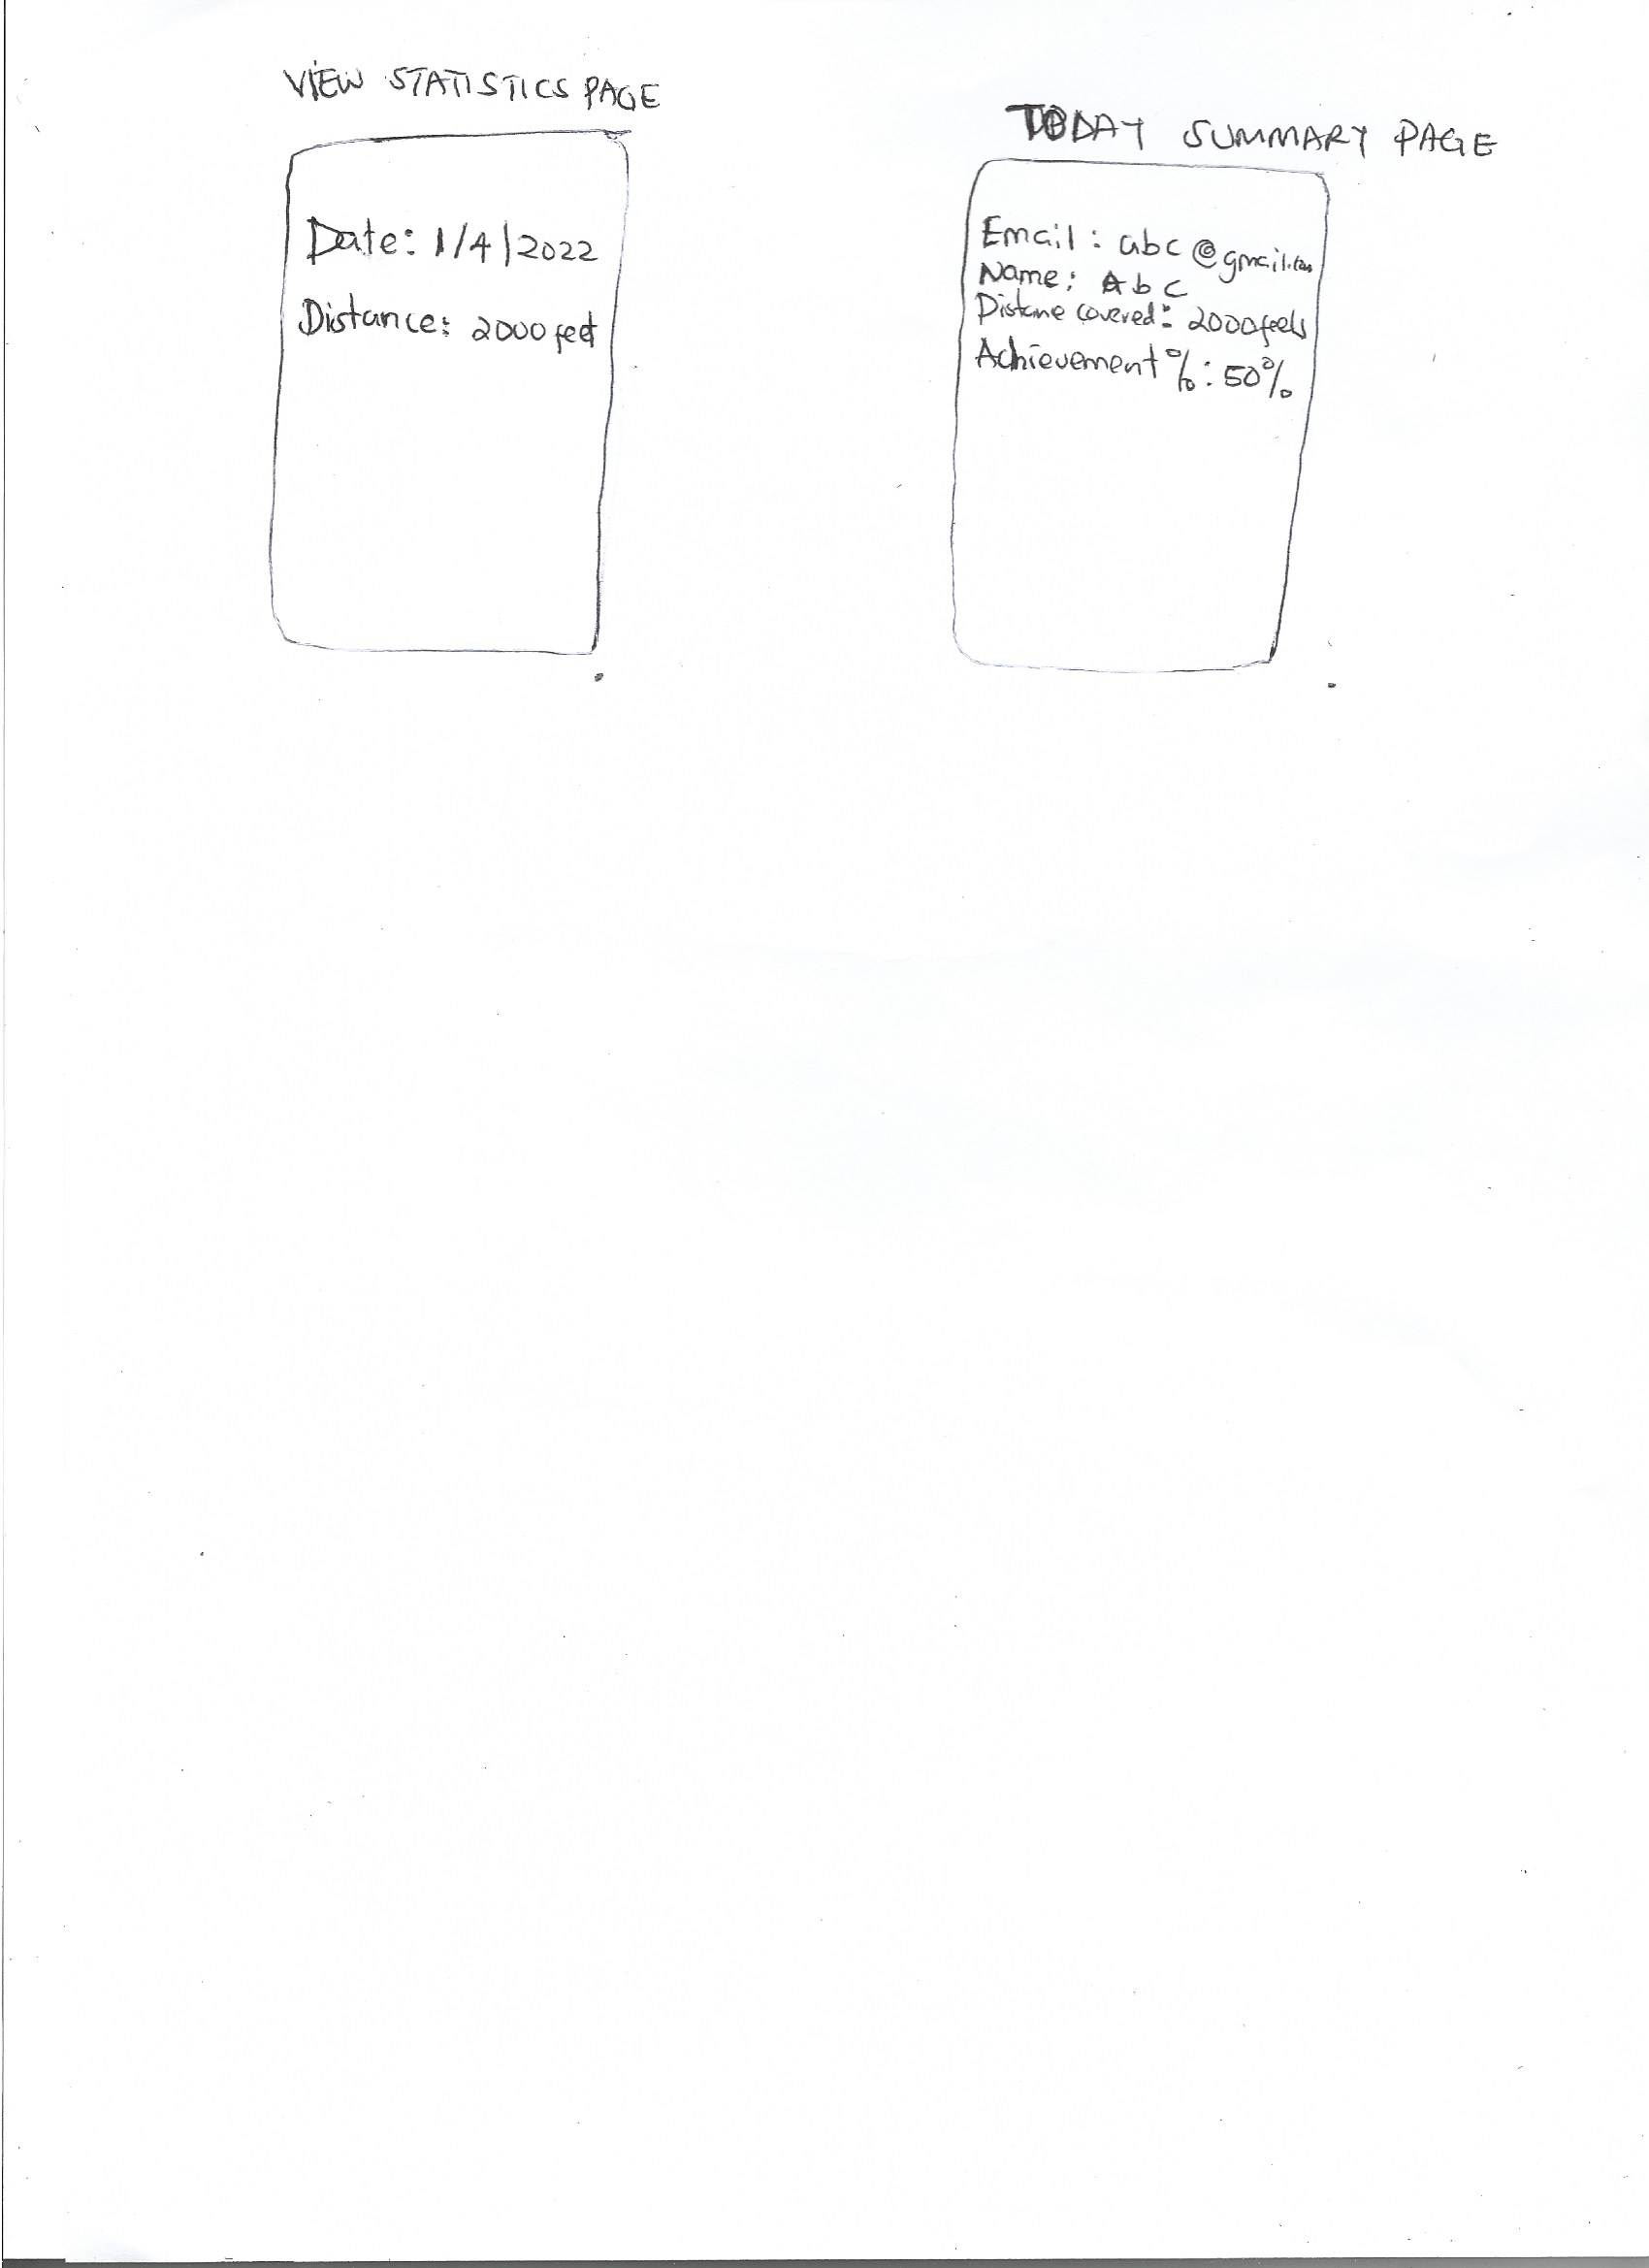 VIEW STATISTICS PAGE
Date: 1/4/2022
Distance: 2000 feet
TODAY SUMMARY PAGE
Email : abc@gmail.com
Name: Abc
Distane covered: 2000feets
Achievement %: 50%